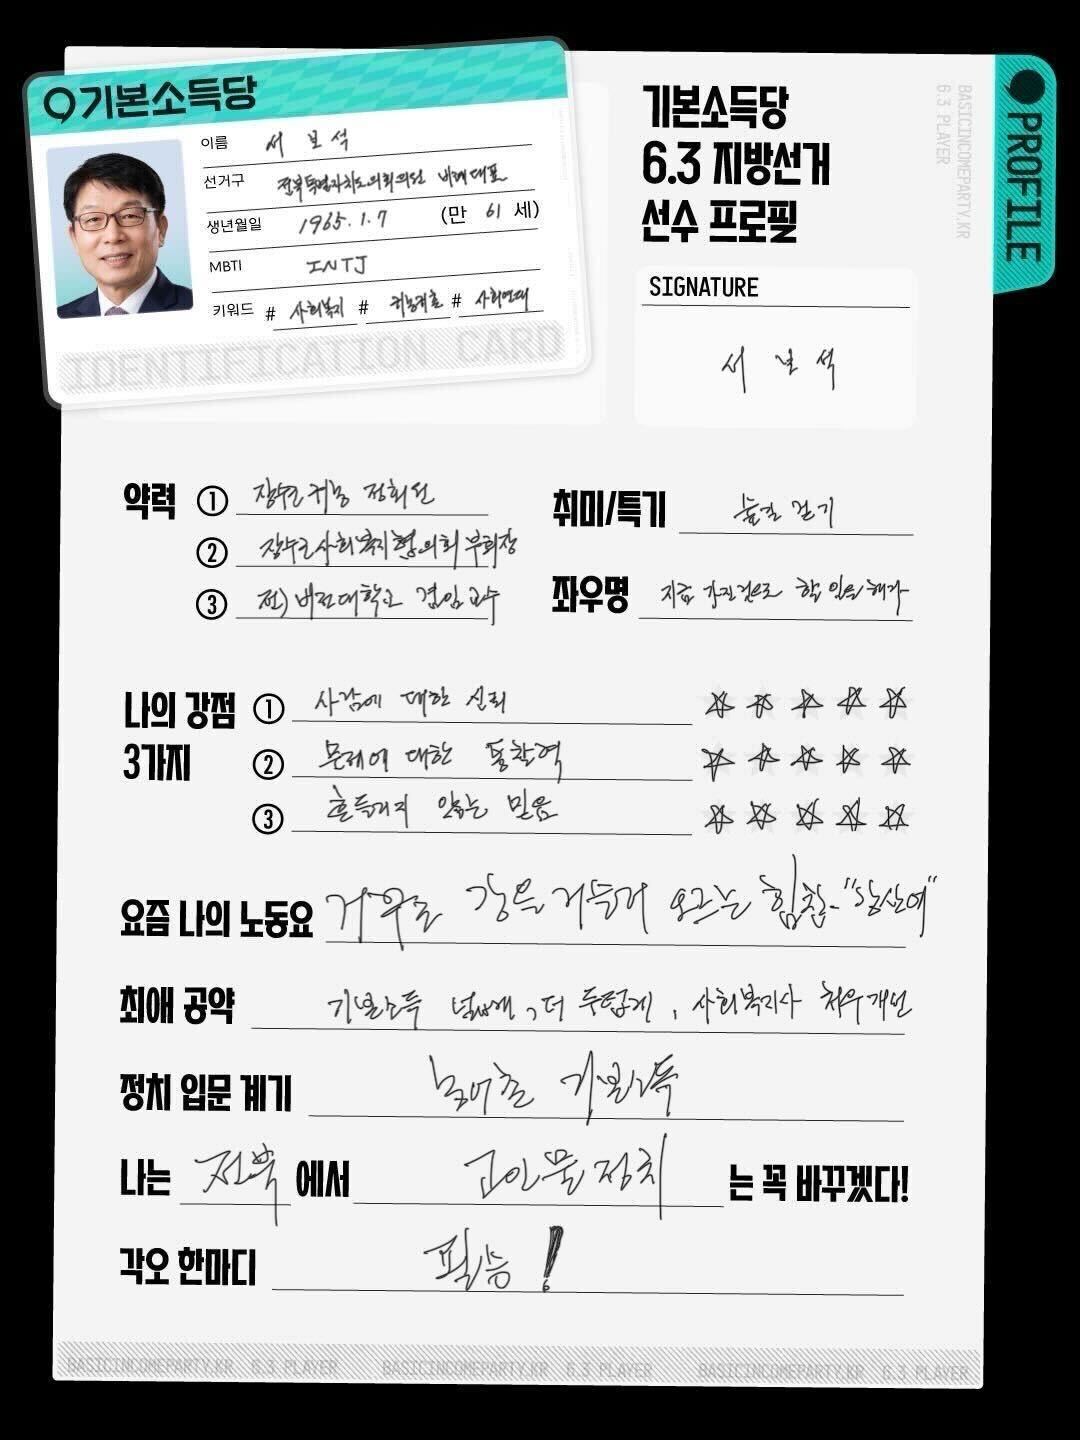 기본소득당
이름 서보석
선거구 전북특별자치도의회의원 비례대표
생년월일 1965. 1. 7 (만 61 세)
MBTI INTJ
키워드 # 사회복지 # 귀농귀촌 # 사회연대
IDENTIFICATION CARD
기본소득당
6.3 지방선거
선수 프로필
SIGNATURE
서보석
PROFILE
BASICINCOMEPARTY.KR
6.3 PLAYER
약력 ① 장수로 귀농
② 장수군사회복지협의회 부회장
③ 전) 비전대학교 겸임교수
취미/특기 들길 걷기
좌우명 지금 가진것으로 할 일을 해라
나의 강점
3가지
① 사람에 대한 신뢰
② 문제에 대한 통찰력
③ 흔들리지 않는 믿음
요즘 나의 노동요 거꾸로 강을 거슬러 오르는 힘찬
최애 공약 기본소득 넓게, 더 두텁게, 사회복지사 처우개선
정치 입문 계기 농어촌 기본소득
나는 전북 에서 고인물 정치 는 꼭 바꾸겠다!
각오 한마디 필승!
BASICINCOMEPARTY.KR 6.3 PLAYER BASICINCOMEPARTY.KR 6.3 PLAYER BASICINCOMEPARTY.KR 6.3 PLAYER